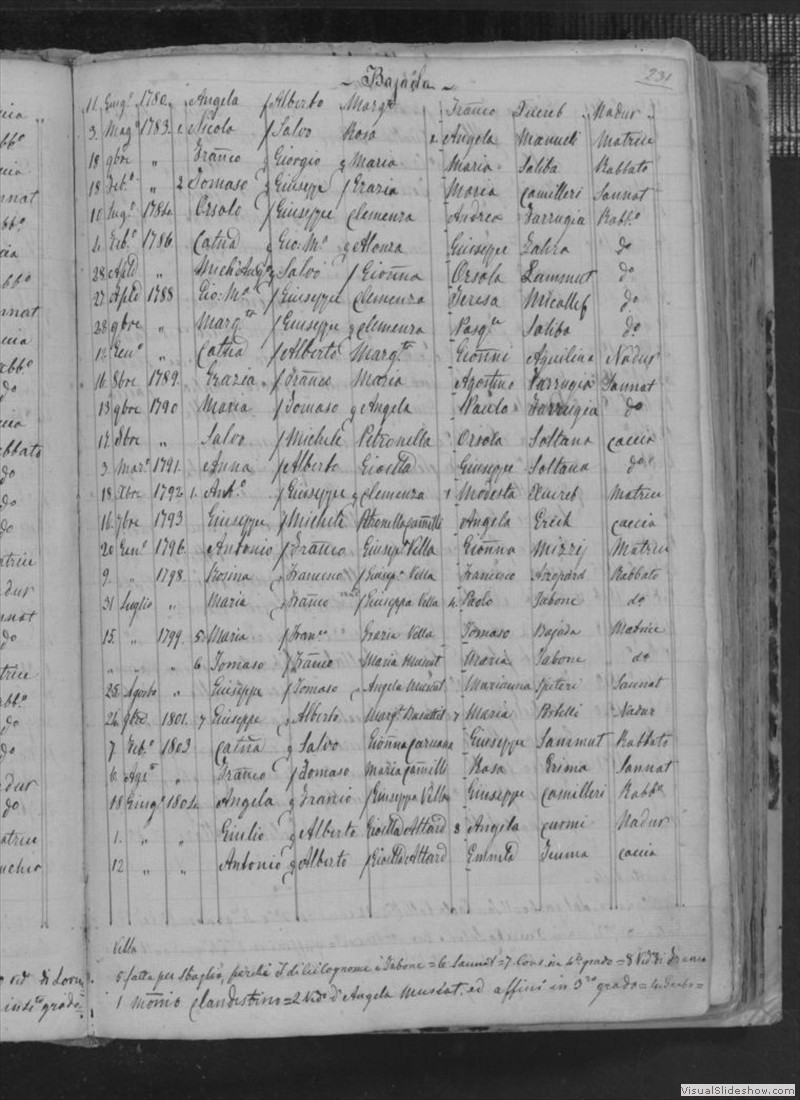 231
~ Bajada ~
11. Giug.o 1780. Angela f Alberto Marg.ta Franco Xuereb Nadur
3. Mag.o 1783. Nicola f Salvo Rosa Angela Manueli Matrice
18 9bre " Franco f Giorgio q Maria Maria Saliba Rabbato
18 Feb.o " 2 Tomaso q Giuseppe f Grazia Maria Camilleri Sannat
10 1784 Orsola f Giuseppe Clemenza Andrea Farrugia Rabb.o
Feb.o 1786. Catna q Gio: M.a q Alonza Giuseppe do
28 Aple " q Salvo f Gionna Orsola Sammut do
27 Aple 1788 Gio: M.a f Giuseppe Clemenza Teresa Micallef do
28 9bre " Marg.ta f Giuseppe q Clemenza Pasq.le Saliba do
Gen.o " Catna f Alberto Marg.ta Gionni Aquilina Nadur
16 8bre 1789. Grazia f Franco Maria Agostino Farrugia Sannat
13 9bre 1790 Maria f Tomaso q Angela Paulo Farrugia do
" Salvo f Michele Petronella Orsola Soltana Caccia
3. Mar.o 1791. Anna f Alberto Gioetta Giuseppe Soltana do
18 Xbre 1792 1. Ant.o f Giuseppe q Clemenza 1 Modesta Xuereb Matrice
16 7bre 1793 Giuseppe f Michele Petronella Camilli Angela Grech Caccia
20 Gen.o 1796. Antonio f Franco Giusep.a Vella Gionna Mizzi Matrice
9. " 1798. Rosina f Francesco f Giusep.a Vella Francesco Azopard Rabbato
31 Luglio " Maria f Franco f Giuseppa Vella 4. Paolo Tabone do
15. " 1799. 5. Maria f Fran.co Grazia Vella Tomaso Bajada Matrice
" " " 6 Tomaso f Franco Maria Muscat Maria Tabone do
25. Agosto " Giuseppe f Tomaso Angela Muscat Marianna Spiteri Sannat
26. 9bre 1801. 7 Giuseppe q Alberto Marg.ta 7 Maria Nadur
7 Feb.o 1803 Catna q Salvo Gionna Caruana Giuseppe Sammut Rabbato
6. " Franco f Tomaso Maria Camilli Rosa Grima Sannat
18 Giug.o 1804 Angela q Francio f Giuseppa Vella Giuseppe Camilleri Rabb.o
1. " " Giulio q Alberto Gioetta Attard 8 Angela Nadur
12 " " Antonio q Alberto f Gioetta Attard Caccia
Vella
5. fatta per sbaglio, perchè il di lei cognome è Tabone = 6. Sannat = 7 Cons. in 4.to grado = 8 Ved. di Franco
1 Mo̅nio Clandestino = 2 Ved.o d'Angela Muscat, ed affini in 3.zo grado =